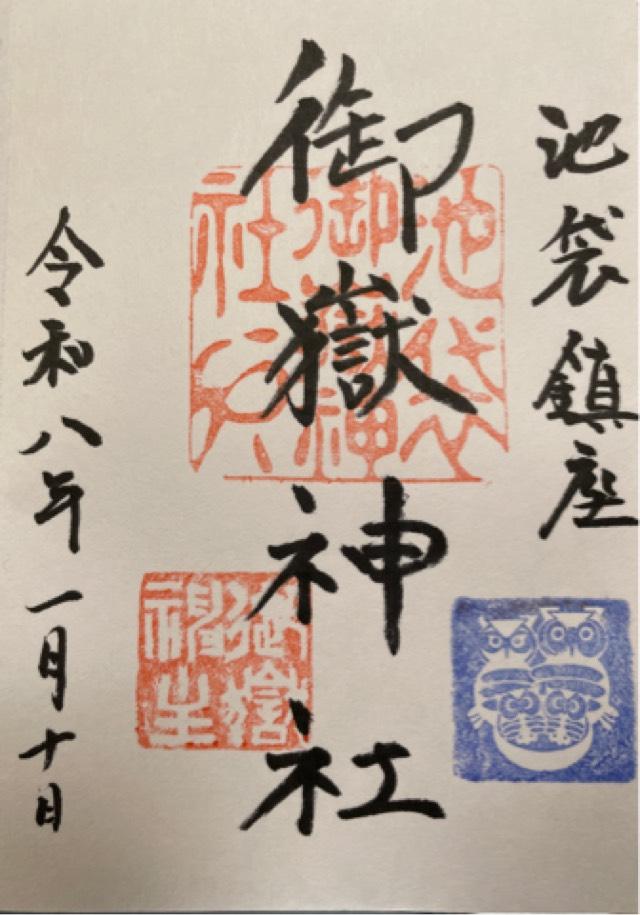 池袋鎮座
御嶽神社
令和八年一月十日
池袋
御嶽神
社之印